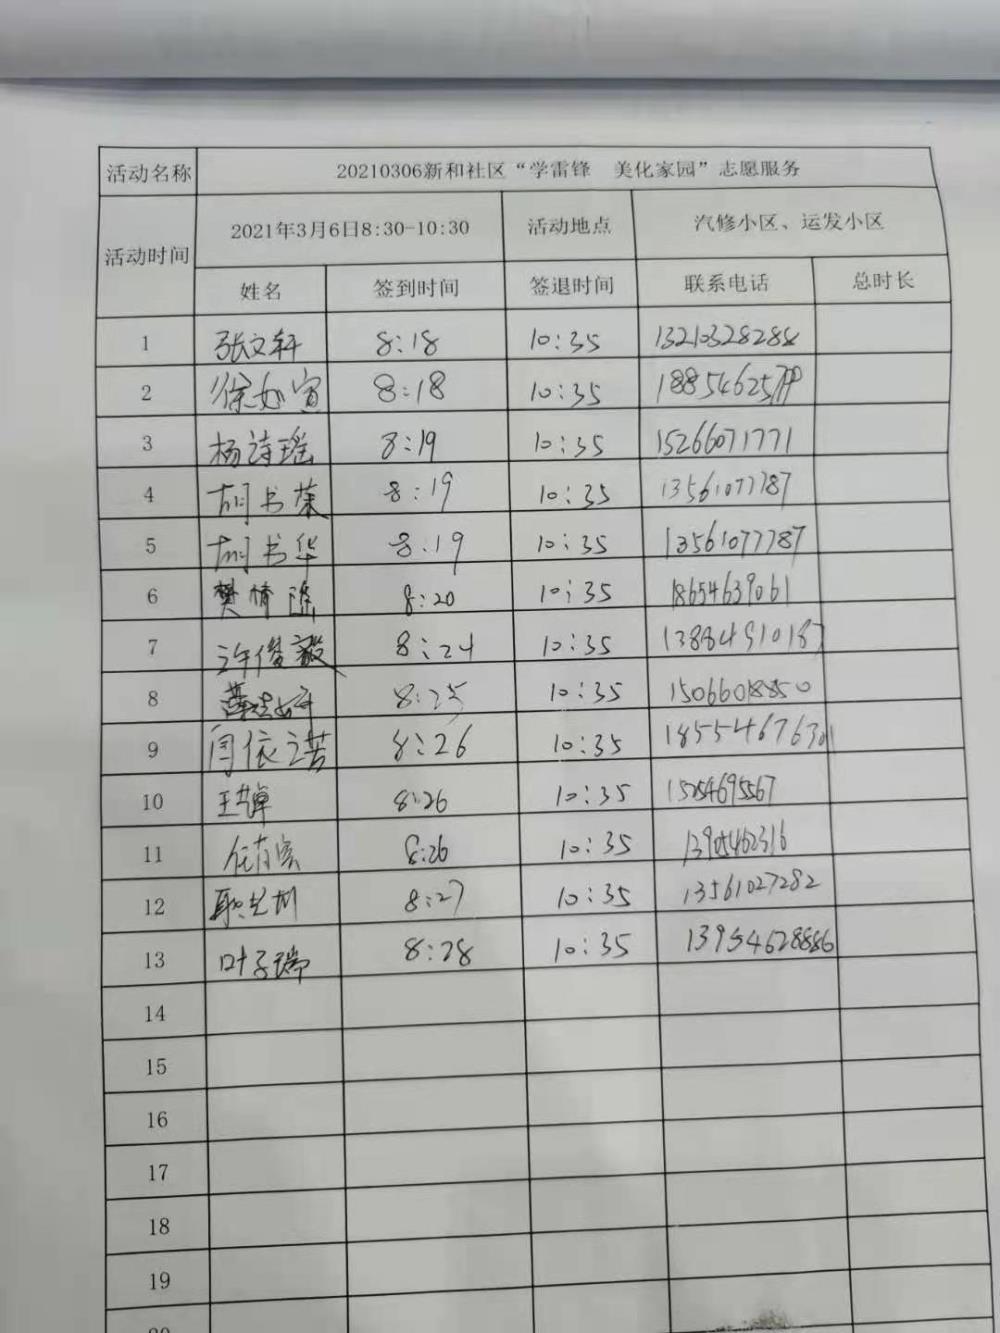 活动名称 20210306新和社区“学雷锋 美化家园”志愿服务
活动时间 2021年3月6日8:30-10:30 活动地点 汽修小区、运发小区
姓名 签到时间 签退时间 联系电话 总时长
1 张文轩 8:18 10:35 13210328284
2 徐如寅 8:18 10:35
3 杨诗瑶 8:19 10:35 15266071771
4 胡书荣 8:19 10:35 13561077787
5 胡书华 8:19 10:35 13561077787
6 樊 8:20 10:35 18654639061
7 许俊毅 8:24 10:35 13884910187
8 8:25 10:35 15066018850
9 闫依诺 8:26 10:35
10 8:26 10:35 15254695567
11 8:26 10:35 13905462316
12 8:27 10:35 13561027282
13 叶子瑞 8:28 10:35 13954628886
14
15
16
17
18
19